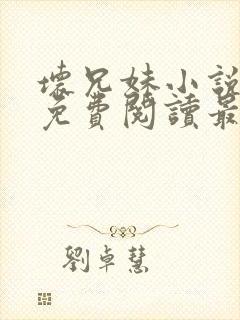 壞兄妹小說
免費閱讀最
劉卓慧